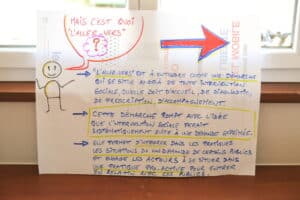 MAIS C'EST QUOI
"L'ALLER-VERS"
?
MOBILE
→ "L'ALLER VERS" EST À ENTENDRE COMME UNE DÉMARCHE
QUI SE SITUE AU-DELÀ DE TOUTE INTERVENTION
SOCIALE, QU'ELLE SOIT D'ACCUEIL, DE DIAGNOSTIC
DE PRESCRIPTION, D'ACCOMPAGNEMENT.
→ CETTE DÉMARCHE ROMPT AVEC L'IDÉE
QUE L'INTERVENTION SOCIALE FERAIT
SYSTÉMATIQUEMENT SUITE À UNE DEMANDE EXPRIMÉE.
→ ELLE PERMET D'INTÉGRER DANS LES PRATIQUES
LES SITUATIONS DE NON DEMANDE DE CERTAINS PUBLICS
ET ENGAGE LES ACTEURS À SE SITUER DANS
UNE PRATIQUE PRO-ACTIVE POUR ENTRER
EN RELATION AVEC CES PUBLICS.